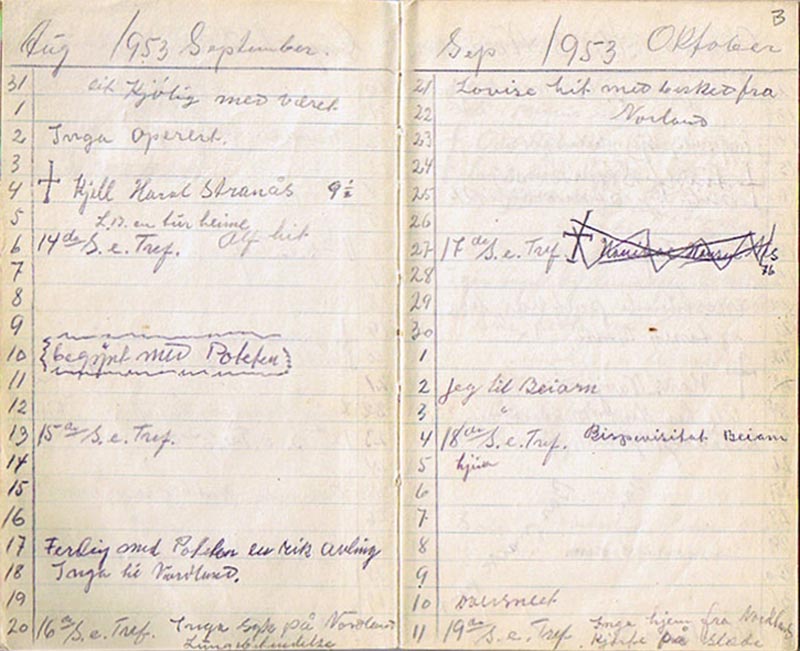 Aug 1953 September.
31 Kjölig med været
1
2 Inga Operert.
3
4 Kjell Harst Stranås 9 1/2
5 L.D. en tur heime
6 14de S. e. Tref. Alf hit
7
8
9
10 begynt med Poteten
11
12
13 15de S. e. Tref.
14
15
16
17 Ferdig med Poteten en rik avling
18 Inga til Nordland.
19
20 16de S. e. Tref. Inga syk på Nordland
Lungebetendelse
3
Sep 1953 Oktober
21 Lovise hit med besked fra
22 Norland
23
24
25
26
27 17de S. e. Tref
76
28
29
30
1
2 Jeg til Beiarn
3 "
4 18de S. e. Tref. Bispevisitat Beiarn
5 hjem
6
7
8
9
10
11 19de S. e. Tref. Inga hjem fra Nordland